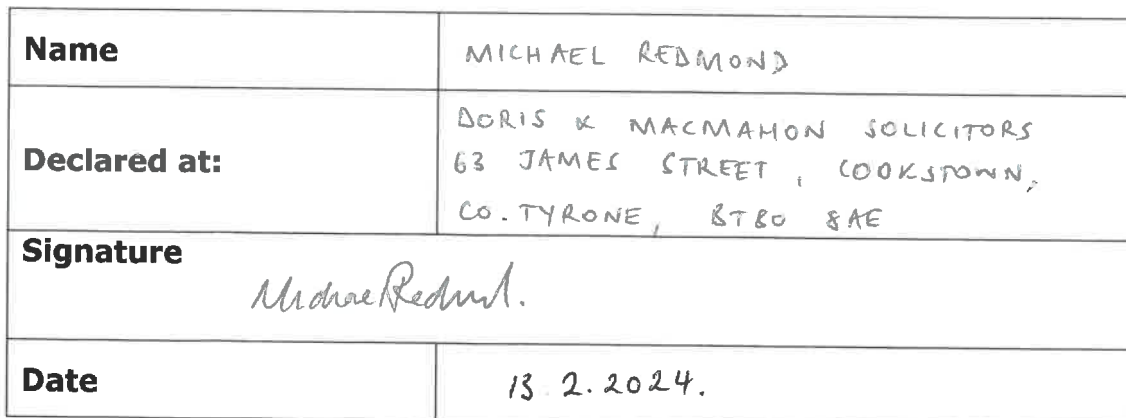 Name MICHAEL REDMOND
DORIS & MACMAHON SOLICITORS
Declared at: 63 JAMES STREET, COOKSTOWN,
CO. TYRONE, BT80 8AE
Signature
Michael Redmond.
Date 13.2.2024.